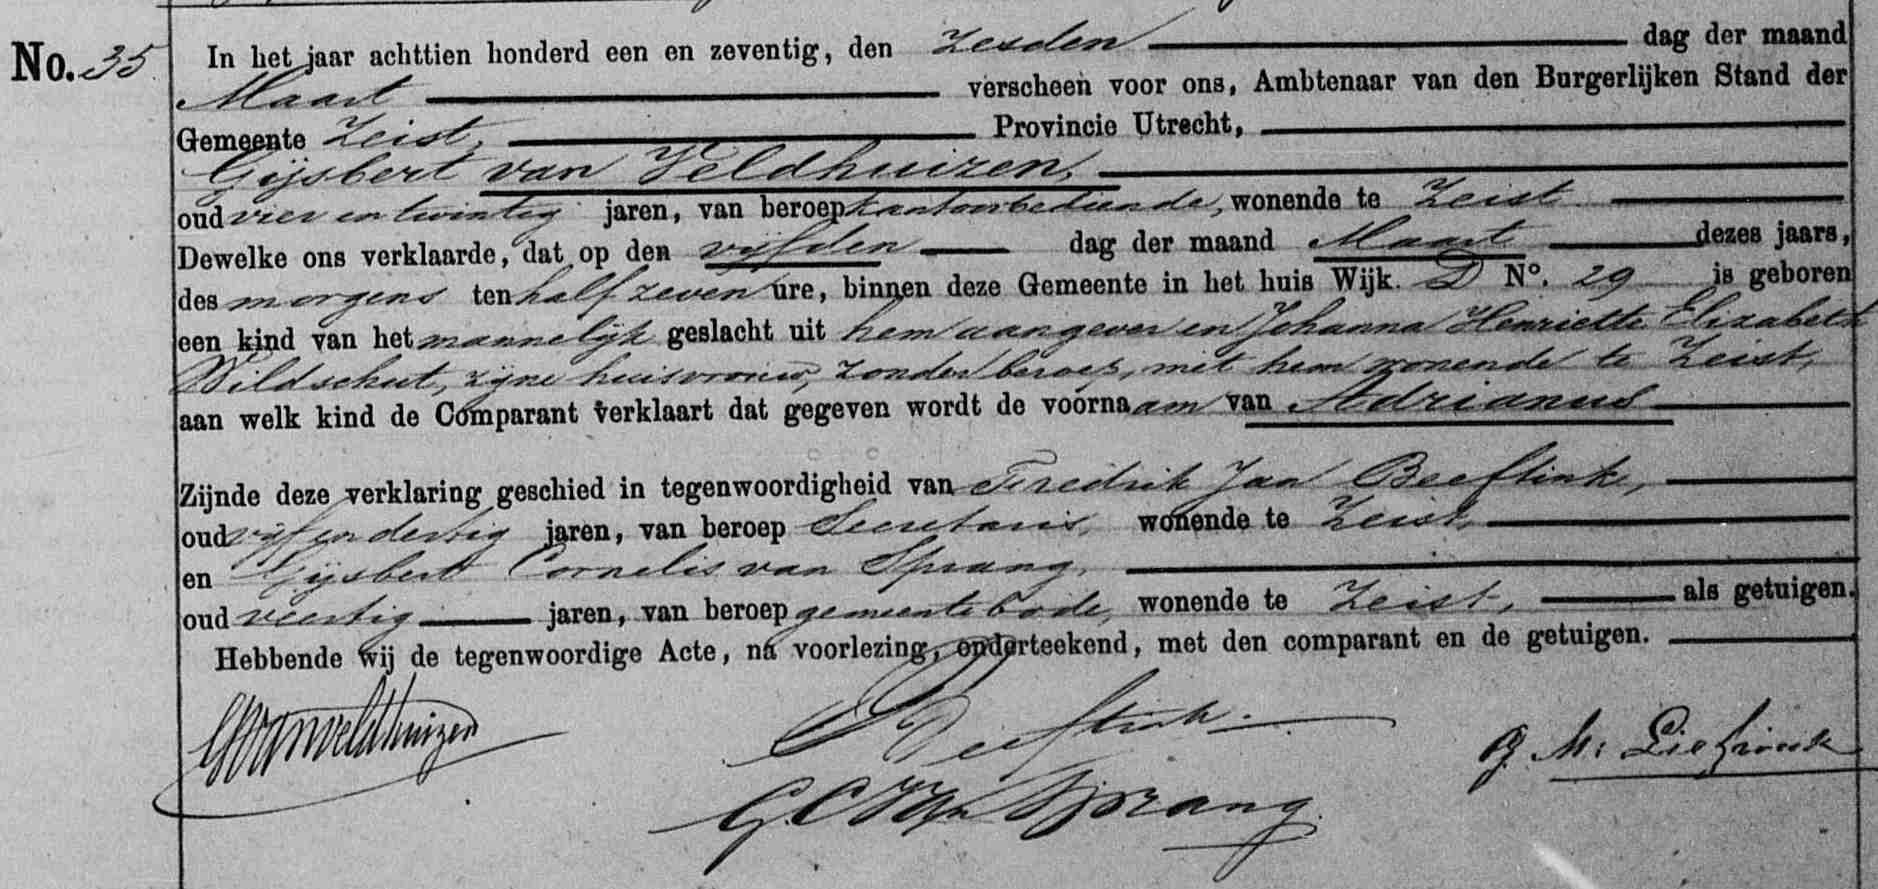 No. 35
In het jaar achttien honderd een en zeventig, den zesden dag der maand
Maart verscheen voor ons, Ambtenaar van den Burgerlijken Stand der
Gemeente Zeist, Provincie Utrecht,
Gijsbert van Veldhuizen,
oud vier en twintig jaren, van beroep kantoorbediende, wonende te Zeist
Dewelke ons verklaarde, dat op den vijfden dag der maand Maart dezes jaars,
des morgens ten half zeven ure, binnen deze Gemeente in het huis Wijk. D No. 29 is geboren
een kind van het mannelijk geslacht uit hem aangever en Johanna Henriette Elizabeth
Wildschut, zijne huisvrouw, zonder beroep, met hem wonende te Zeist,
aan welk kind de Comparant verklaart dat gegeven wordt de voornaam van Adrianus
Zijnde deze verklaring geschied in tegenwoordigheid van Fredrik Jan Beeftink,
oud vijf en dertig jaren, van beroep Secretaris, wonende te Zeist,
en Gijsbert Cornelis van Sprang,
oud veertig jaren, van beroep gemeentebode, wonende te Zeist, als getuigen.
Hebbende wij de tegenwoordige Acte, na voorlezing, onderteekend, met den comparant en de getuigen.
GvanVeldhuizen
Beeftink.
G. C. Van Sprang.